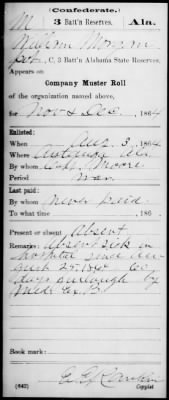 (Confederate.)
M 3 Batt'n Reserves. Ala.
William Morgan
Pvt., C, 3 Batt'n Alabama State Reserves.
Appears on
Company Muster Roll
of the organization named above,
for Nov & Dec, 1864
Enlisted:
When Aug 3, 1864
Where Autauga
By whom Capt Moore
Period war
Last paid:
By whom never paid
To what time , 186 .
Present or absent Absent
Remarks: Absent sick in
hospital since
25 1864 60
days furlough by
Med. Ex. B.
Book mark:
(642) Copyist